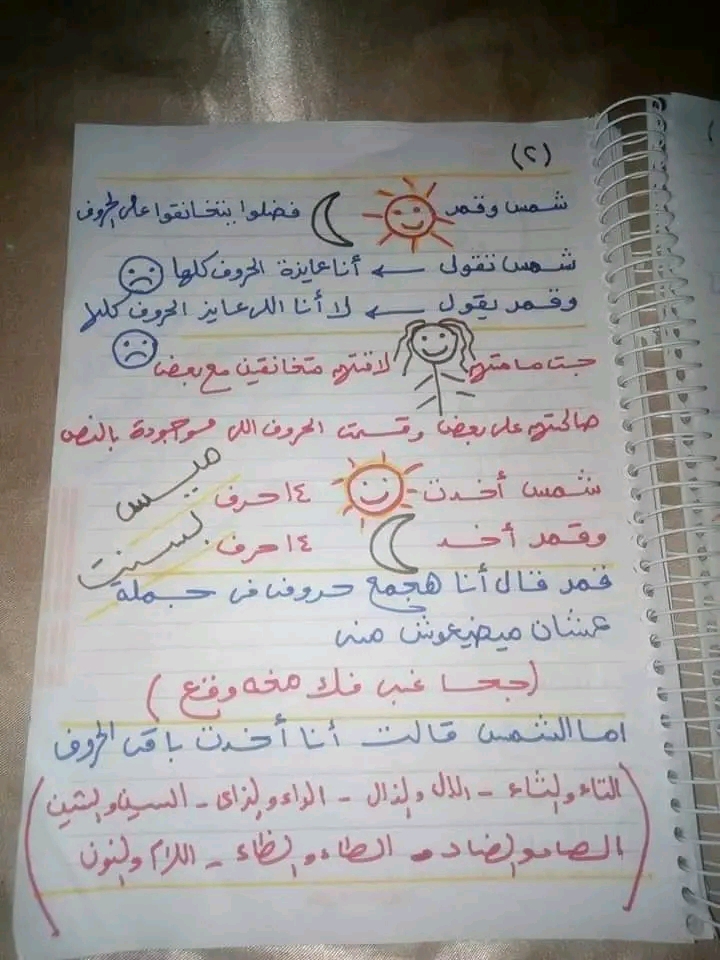 (٢)
شمس وقمر فضلوا بتخانقوا على الحروف
شمس تقول ← أنا عايزة الحروف كلها
وقمر يقول ← لا أنا اللى عايز الحروف كلها
جت مامتهم لاقتهم متخانقين مع بعض
صالحتهم على بعض وقسمت الحروف اللى موجودة بالنص
شمس أخدت ١٤ حرف
وقمر أخد ١٤ حرف
ميس
بسنت
قمر قال أنا هجمع حروفى فى جملة
عشان ميضيعوش منى
(جحا غبى فك مخه وقع)
اما الشمس قالت أنا أخدت باقى الحروف
(التاء والثاء - الدال والذال - الراء والزاى - السين والشين
الصاد والضاد - الطاء والظاء - اللام والنون)